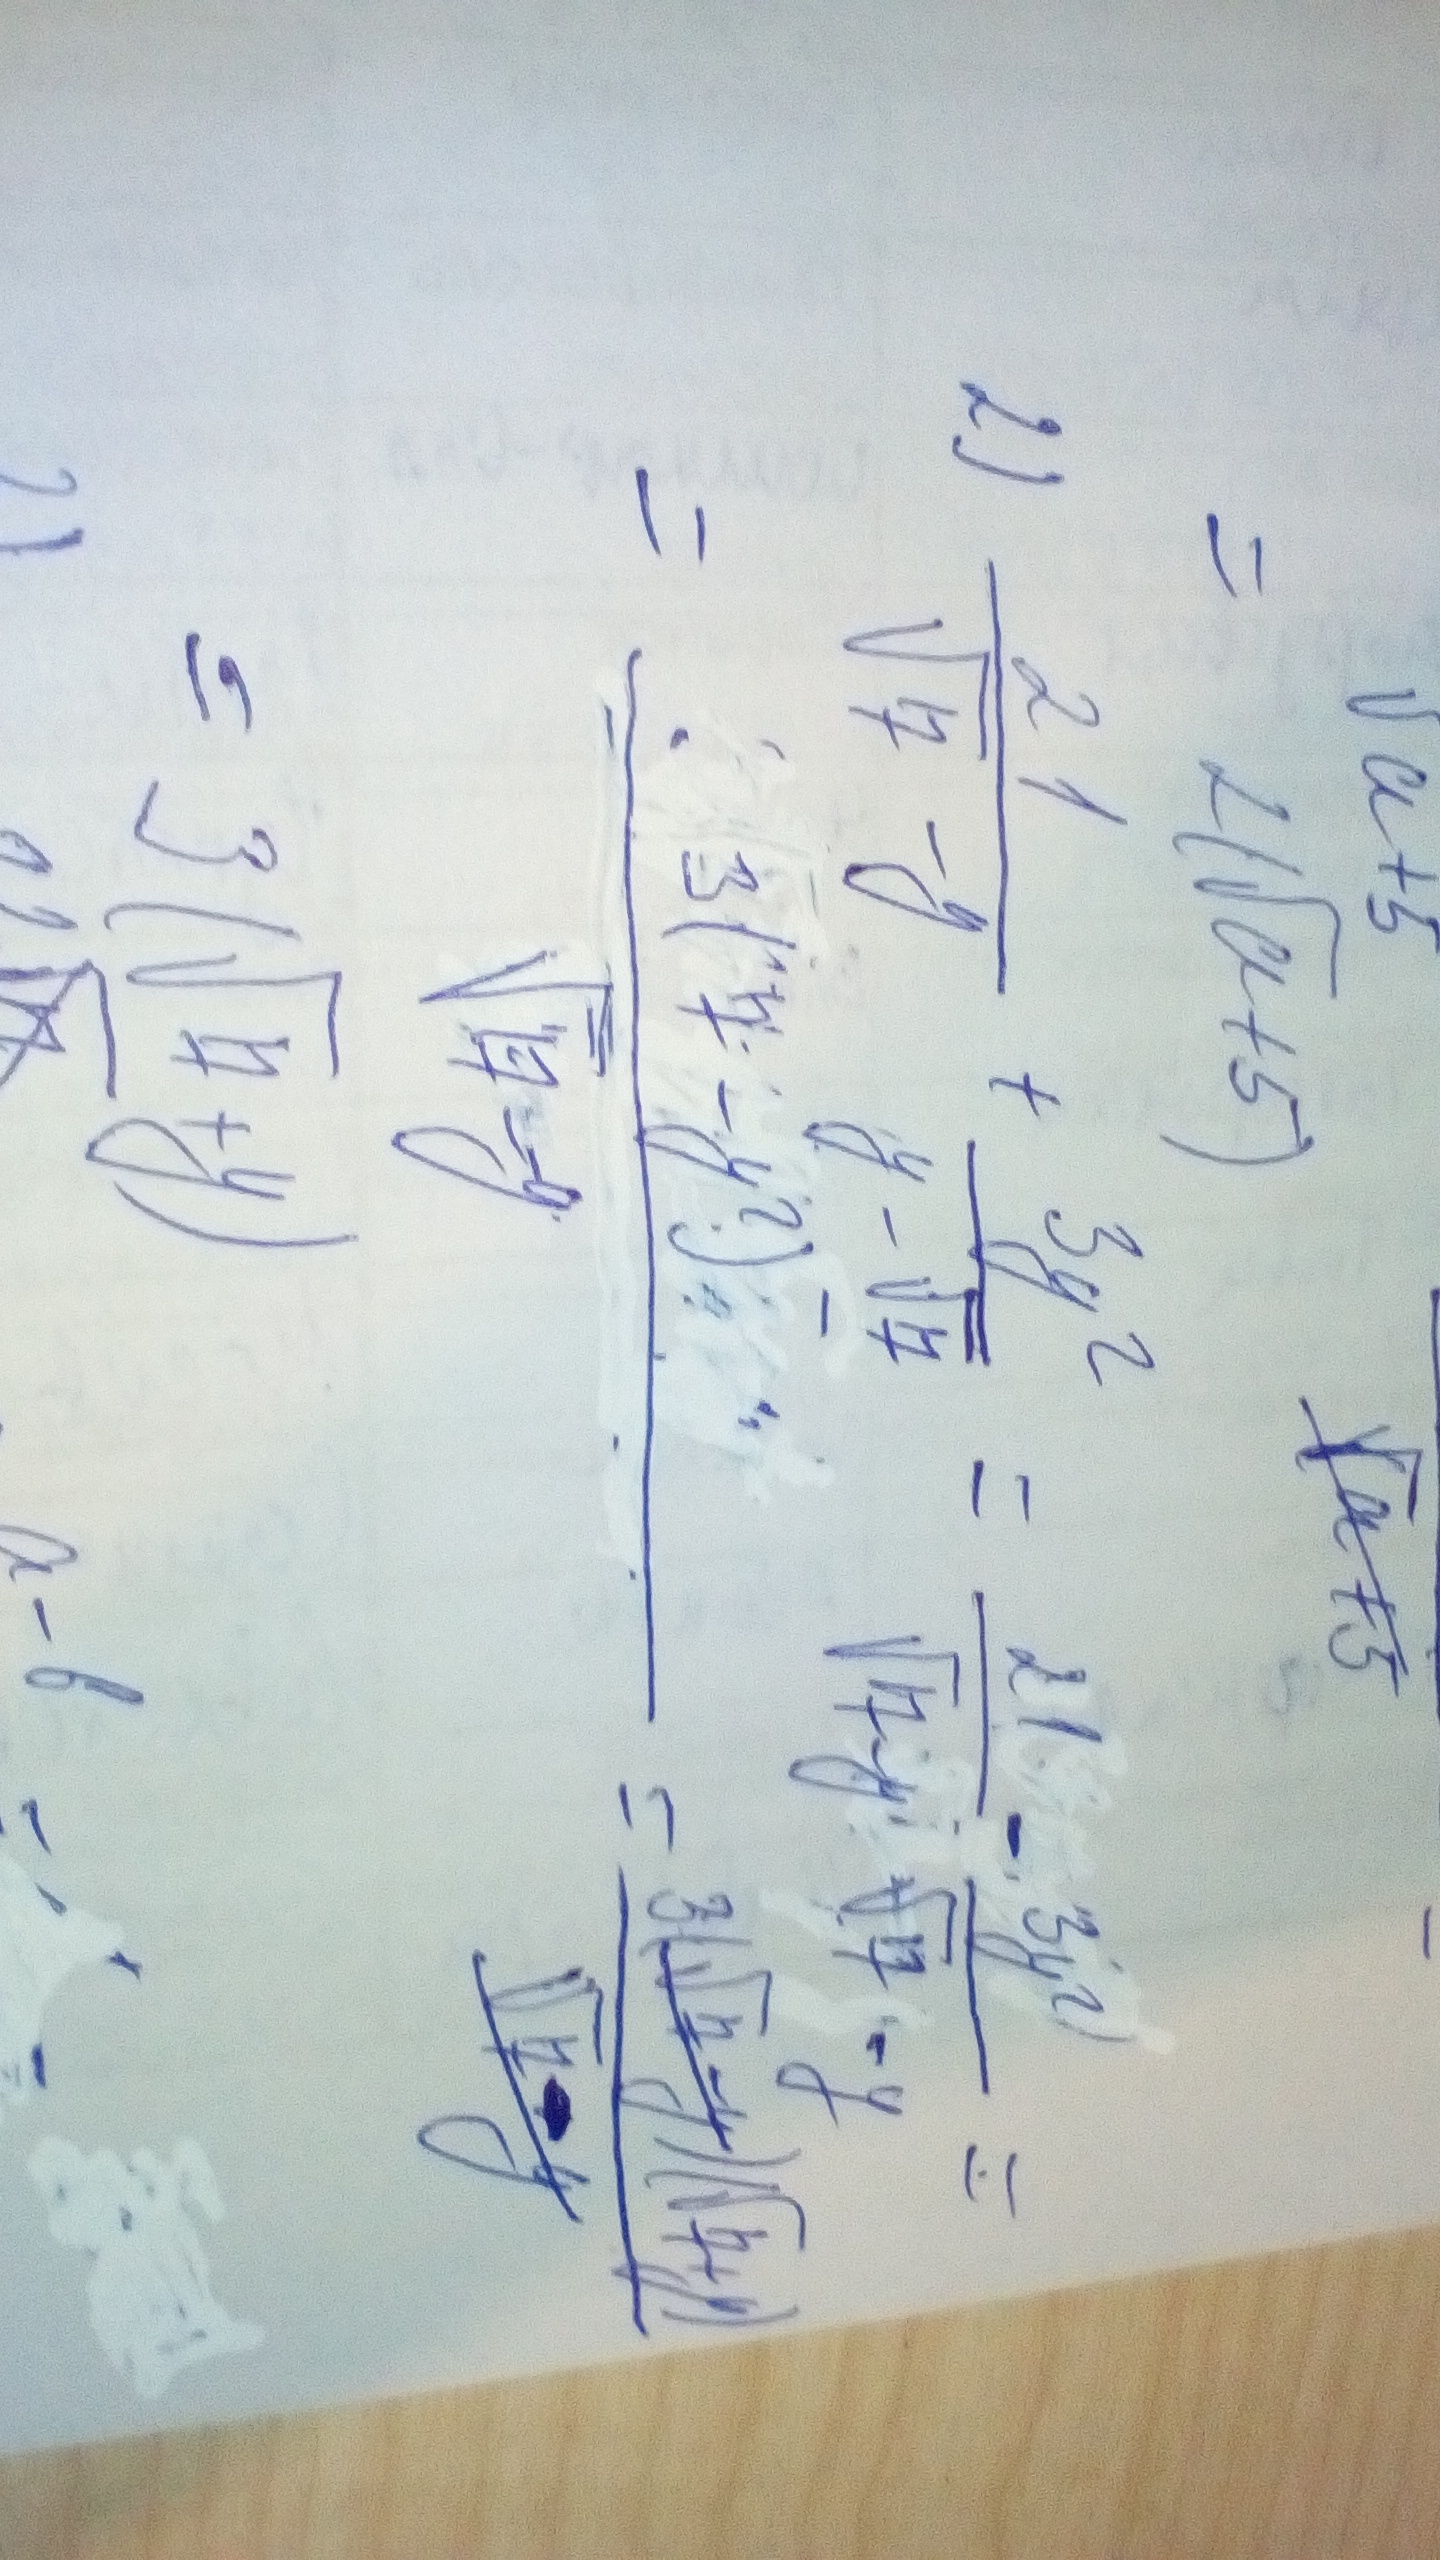 √a+5
√a+5
= 2(√a+5)
2) 21/(√7 - y) + 3y²/(y - √7) = 21/(√7-y) - 3y²/(√7-y) =
= 3(7-y²)/(√7-y) = 3(√7-y)(√7+y)/(√7-y)
= 3(√7+y)
2) a-b =